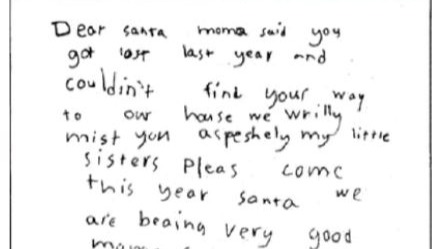 Dear santa moma said you
got lost last year and
couldin't find your way
to our house we wrilly
mist you aspeshely my little
sisters Pleas come
this year santa we
are beaing very good